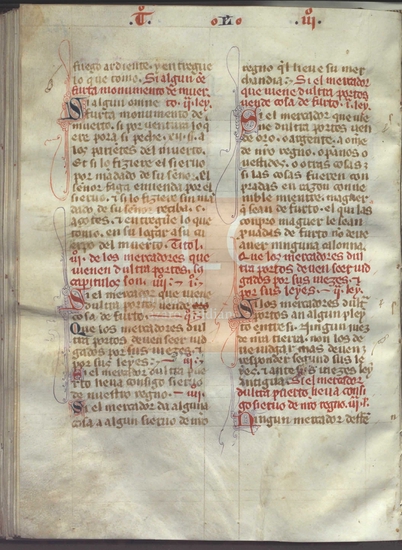 T. L. iij
fuego ardiente. y entregue
lo que tomo. Si algun ome
furta monumento de muer.
Si algun omne to. ij. ley.
furta monumento de
muerto. si por uentura lo q
ere pora si peche .xij. ss. a
los parientes del muerto.
Et si lo fiziere el sieruo
por mādado de su señor. El
señor faga emienda por el
sieruo. τ si lo fizier sin mā
dado de su señor reciba .c.
açotes. τ entregue lo que
tomo. en su logar a su cu
erpo del muerto. Titol
iij. de los mercadores que
uienen dultra portos. ha
capitulos son iiij.
Si el mercador que uiene
dultra portos uende
cosa de furto.
Que los mercadores dul
tra portos deuen seer iud
gados por sus iuezes. τ
por sus leyes.
Si el mercador dultra pu
erto lieua consigo sieruo
de nuestro regno. iij
Si el mercador da alguna
cosa a algun sieruo de nro
regno ql lieue su mer
chandia. Si el mercador
que uiene dultra portos
uende cosa de furto. i. ley.
Si el mercador que uie
ne dultra portos uen
de oro. o argente. a om̄e
de nr̄o regno. o paños o
uestidos. o otras cosas.
si las cosas fueren con
pradas en razon conue
nible mientre. maguer
q sean de furto. el qui las
compro maguer le sean
prouadas de furto no deue
auer ninguna calonna.
Que los mercadores dul
tra portos deuen seer iud
gados por sus iuezes. τ
por sus leyes. ij. ley.
Si los mercadores dultra
portos an algun pley
to entre si. Ningun iuez
de nra tierra non los de
ue iudgar. mas deuen
responder segund sus leys
τ ante sus iuezes. ley
antigua. Si el mercador
dultra puerto lieua consi
go sieruo de nro regno. iij. l.
Ningun mercador deste